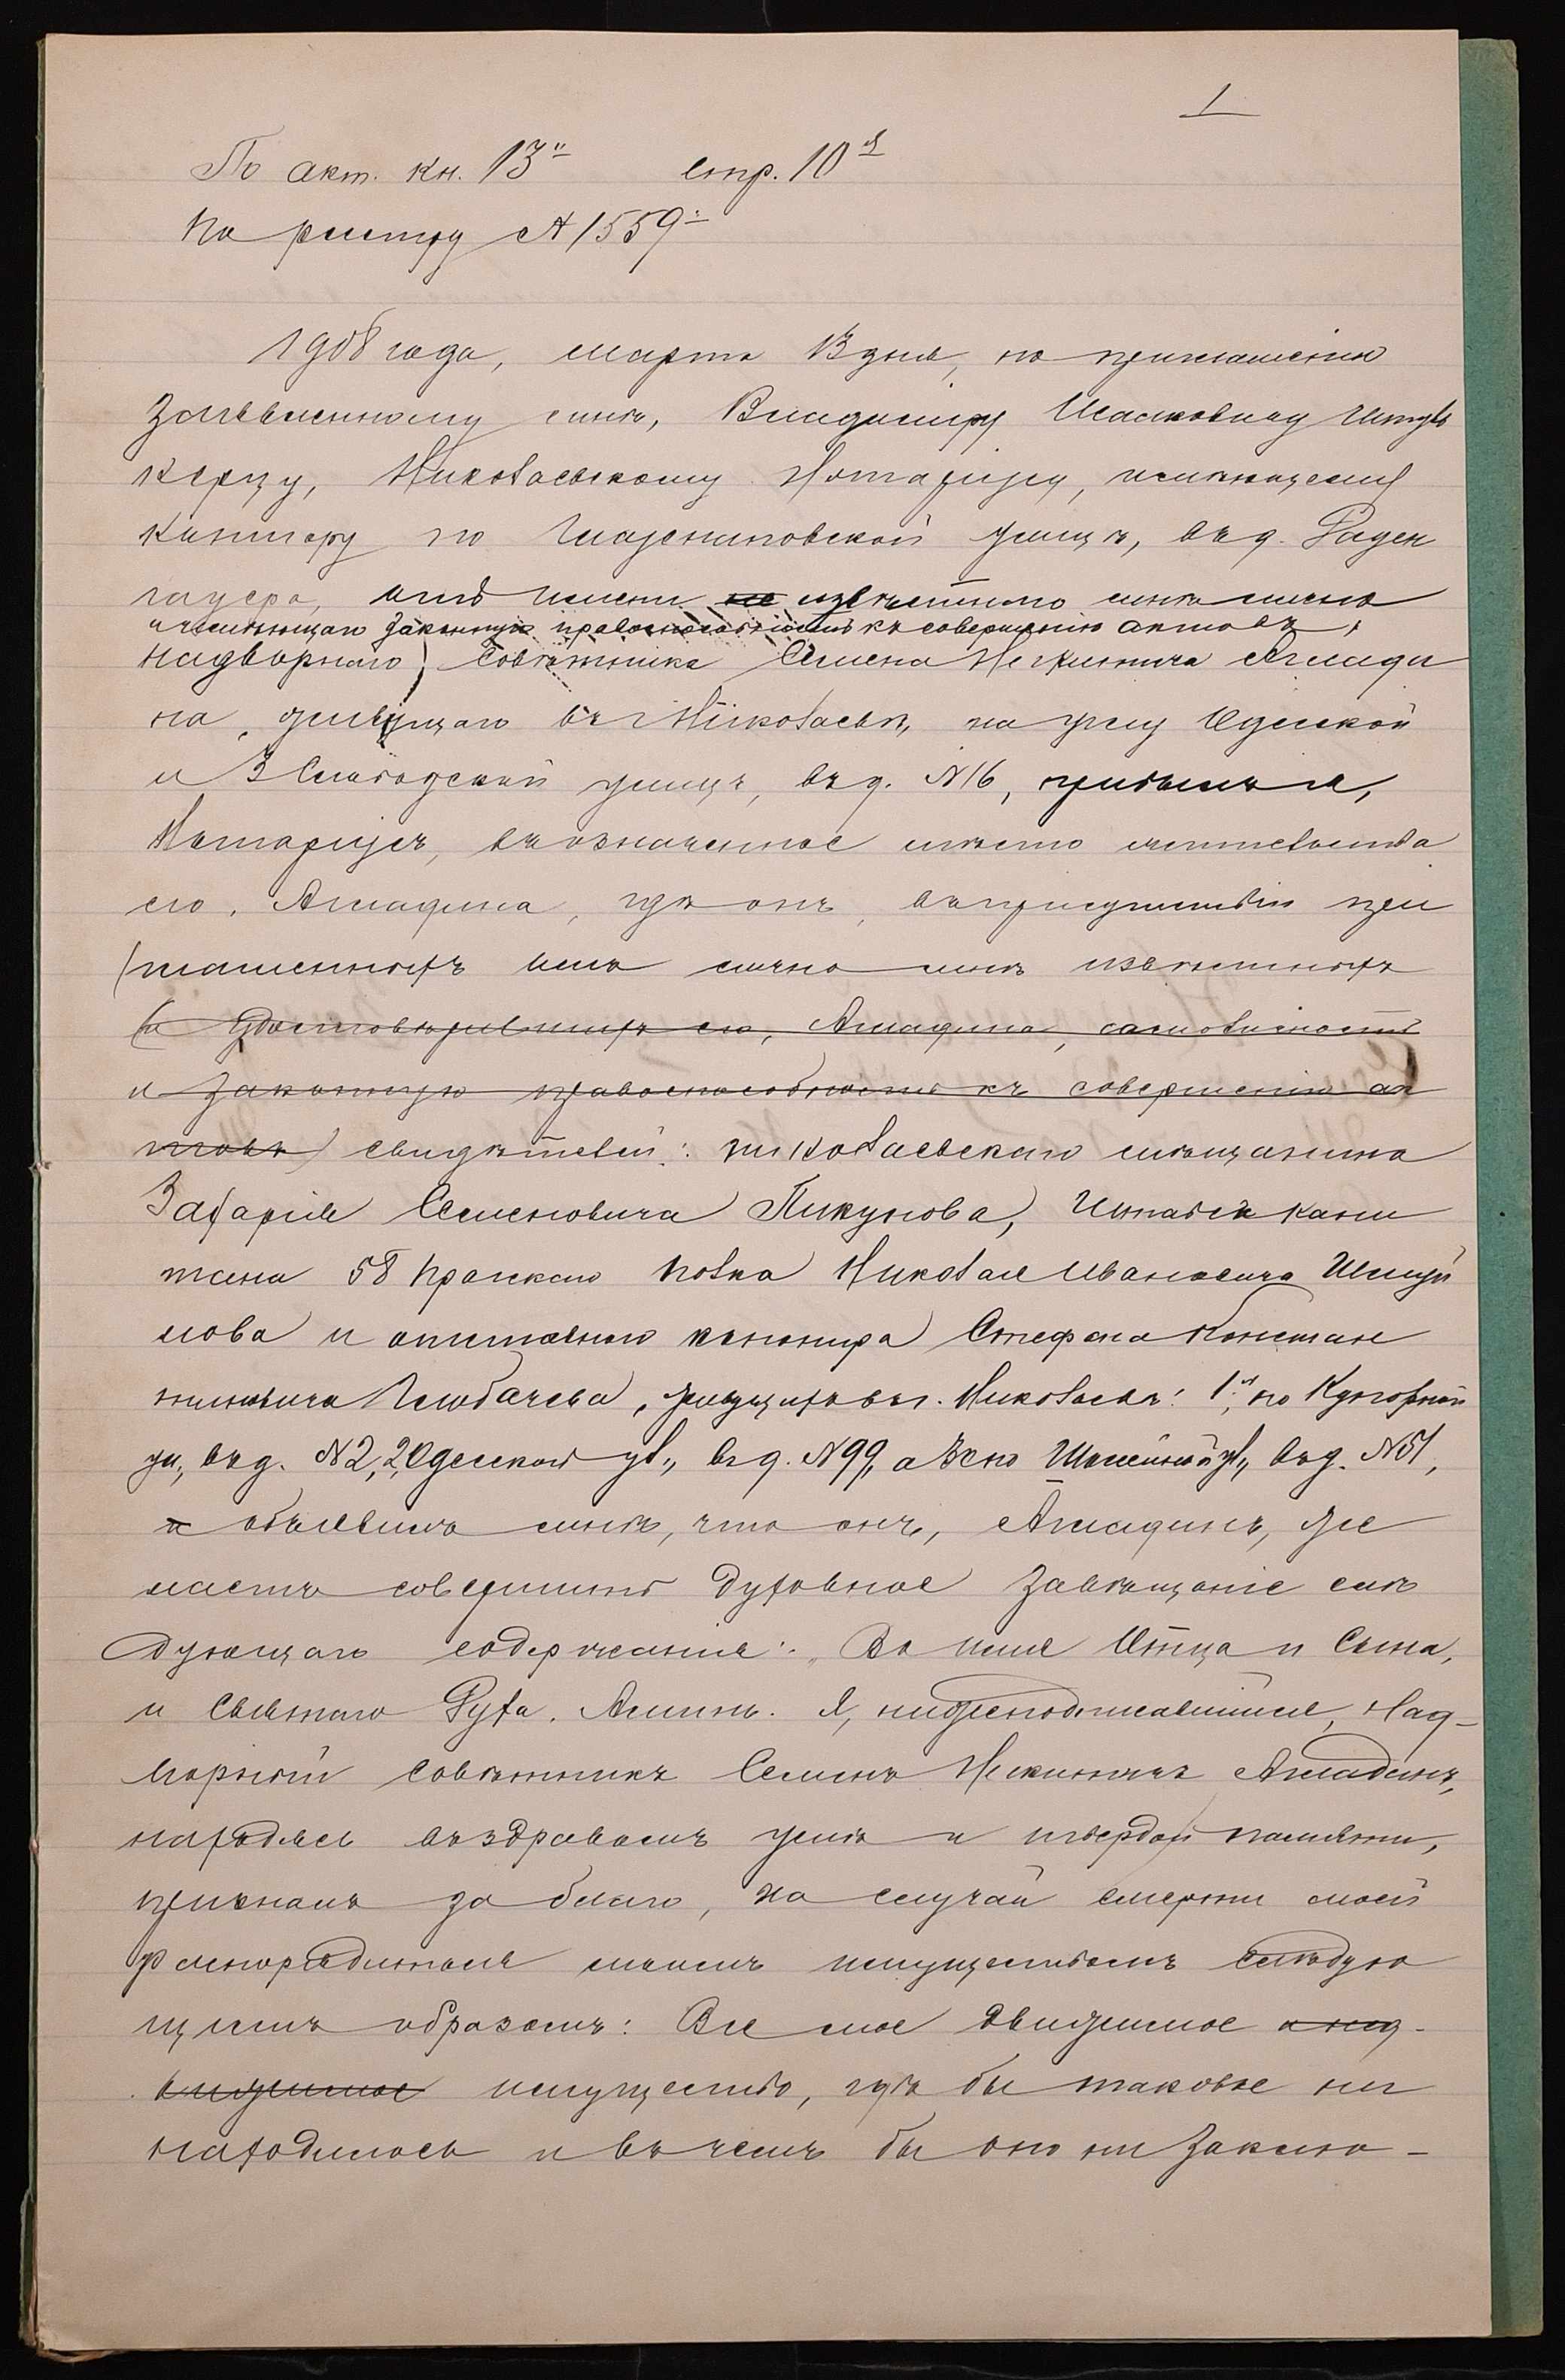 1
По акт. кн. 13ᵃ стр. 10ᵃ
По реестру № 1559ᵃ
1908 года, марта 13 дня, по приглашенію
заявленному мнѣ, Владиміру Исааковичу
Николаевскому Нотаріусу, имѣющему
контору по улицѣ, въ д. Раден
гауера, отъ имени не извѣстнаго мнѣ лично
и имѣющаго законную правоспособность къ совершенію актовъ,
надворнаго совѣтника Семена Никитича Алмади
на, живущаго въ г. Николаевѣ, на углу Одесской
и 3 Слободской улицъ, въ д. № 16, прибылъ я,
Нотаріусъ, въ означенное мѣсто жительства
его, Алмадина, гдѣ онъ, въ присутствіи при
глашенныхъ имъ лично мнѣ извѣстныхъ
(и удостовѣрившихъ его, Алмадина, самоличность
и законную правоспособность къ совершенію ак
товъ) свидѣтелей: николаевскаго мѣщанина
Захарія Семеновича Пикунова, Штабсъ капи
тана 58 Пражскаго полка Николая Ивановича
лова и отставного канонира Стефана Констан
тиновича живущихъ въ г. Николаевѣ: 1й, по Кузнечной
ул., въ д. № 2, 2, Одесской ул., въ д. № 99, а 3 по ул., въ д. № 51,
и объявилъ мнѣ, что онъ, Алмадинъ, же
лаетъ совершить духовное завѣщаніе слѣ
дующаго содержанія: „Во имя Отца и Сына,
и Святаго Духа. Аминь. Я, нижеподписавшійся, Над-
ворный совѣтникъ Семенъ Никитичъ Алмадинъ,
находясь въ здравомъ умѣ и твердой памяти,
призналъ за благо, на случай смерти моей
распорядиться моимъ имуществомъ слѣдую
щимъ образомъ: Все мое движимое и нед-
вижимое имущество, гдѣ бы таковое ни
находилось и въ чемъ бы оно ни заклю-